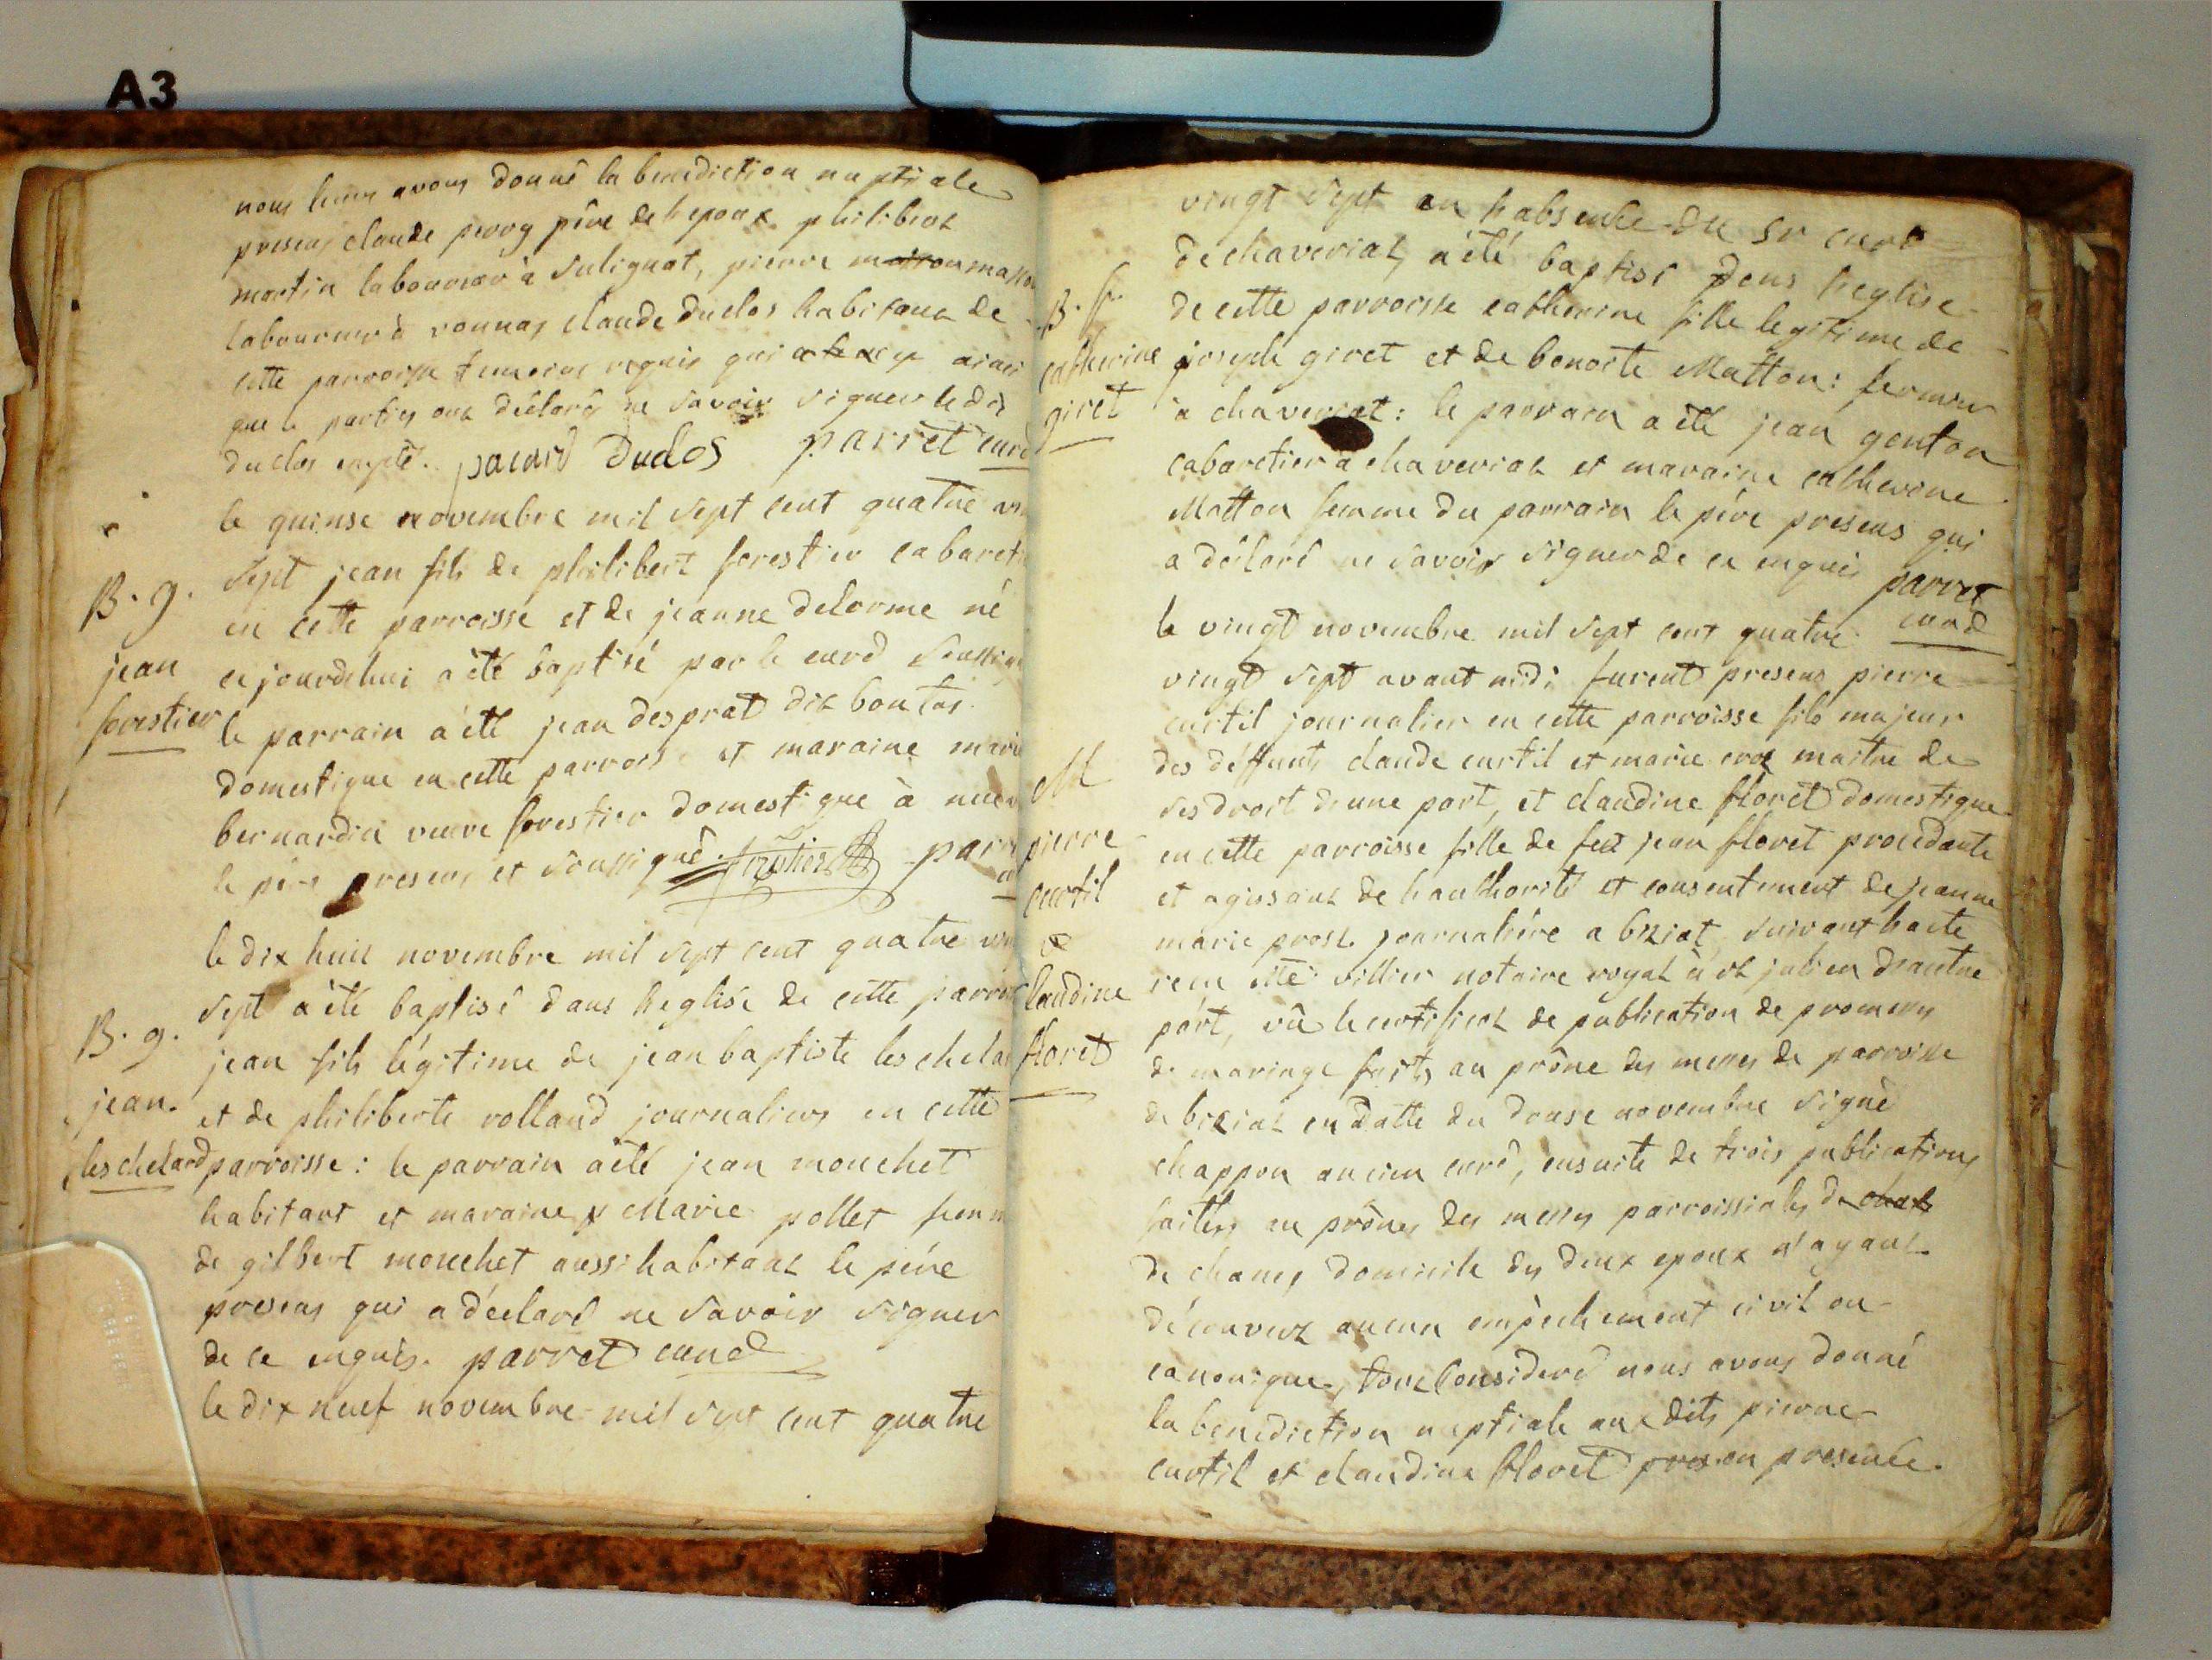 A3
nous leurs avons donné la benediction nuptiale
presens claude perry père de l'epoux philibert
martin laboureur à sulignat, pierre
laboureur à vonnas claude duclos habitant de
cette parroisse temoins requis qui ainsi
que les parties ont déclaré ne savoir signer le dit
duclos excepté. pacard Duclos parret curé
le quinse novembre mil sept cent quatre
B. g.
jean
forestier
sept jean fils de philibert forestier
en cette parroisse et de jeanne delorme né
ce jourdhui a été baptisé par le curé
le parrain a été jean desprat dit
domestique en cette parroisse et maraine
bernardin veuve forestier domestique à
le père presens et soussigné. forestier
le dix huit novembre mil sept cent quatre
B. g.
jean
leschelard
sept a été baptisé dans l'eglise de cette
jean fils légitime de jean baptiste
et de philiberte rolland journaliers en cette
parroisse: le parrain a été jean mouchet
habitant et maraine Marie pollet
de gilbert mouchet aussi habitant le père
presens qui a déclaré ne savoir signer
de ce enquis. parret curé
le dix neuf novembre mil sept cent quatre
vingt sept en l'absence du sr curé
B. f.
catherine
giret
de chaveriat, a été baptisé dens l'eglise
de cette parroisse catherine fille legitime de
joseph giret et de benoite Matton: fermier
à chaveriat: le parrain a été jean genton
cabaretier à chaveriat et maraine catherine
Matton femme du parrain le père presens qui
a déclaré ne savoir signer de ce enquis parret
curé
le vingt novembre mil sept cent quatre
vingt sept avant midi furent presens pierre
curtil journalier en cette parroisse fils majeur
M
pierre
curtil
&
claudine
floret
des déffunts claude curtil et marie maitre de
ses droit d'une part, et claudine floret domestique
en cette parroisse fille de feu jean floret procedante
et agissant de l'authorité et consentement de jeanne
marie prost journalière a biziat, suivant l'acte
recu Me villier notaire royal à st julien d'autre
part, vû le certificat de publication de promesses
de mariage faites au prône des messes de parroisse
de biziat en datte du douse novembre signé
chappon ancien curé, ensuite de trois publications
faittes au prônes des messes parroissiales de
de chanes domicile des deux epoux n'ayant
découvert aucun empèchement civil ou
canonique, tout consideré nous avons donné
la benediction nuptiale auxdits pierre
curtil et claudine floret en presence